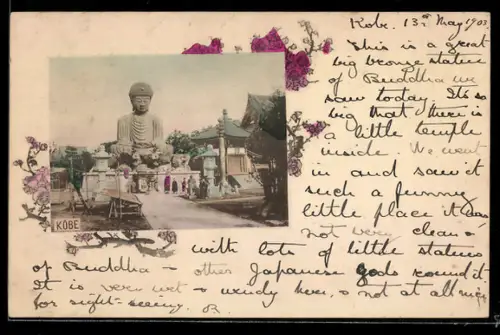 Kobe. 13th May 1903
This is a great
big bronze statue
of Buddha we
saw today. It's so
big that there is
a little temple
inside. We went
in and saw it
such a funny
little place it was
not very clean -
with lots of little statues
of Buddha - other Japanese gods round it
It is very wet - windy here, & not at all nice
for sight-seeing. B.
KOBE